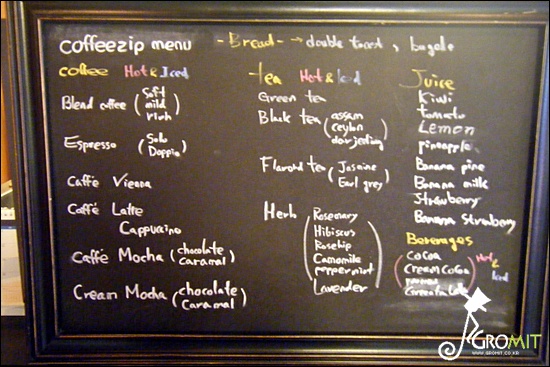 coffeezip menu - Bread - → double toast, bagele
coffee Hot & Iced
Blend coffee (Soft
mild
rich)
Espresso (Solo
Doppio)
Caffé Vienna
Caffé Latte
Cappuccino
Caffé Mocha (chocolate
caramal)
Cream Mocha (chocolate
Caramal)
tea Hot & Iced
Green tea
Black tea (assam
ceylon
dorjeeling)
Flavord tea (Jasmine
Earl grey)
Herb (Rosemary
Hibiscus
Rosehip
Camomile
peppermint
Lavender)
Juice
Kiwi
tomato
Lemon
pineapple
Banana pine
Banana milk
Strawberry
Banana Strawberry
Beverages
(cocoa
Cream Cocoa) Hot & Iced
GROMIT
WWW.GROMIT.CO.KR